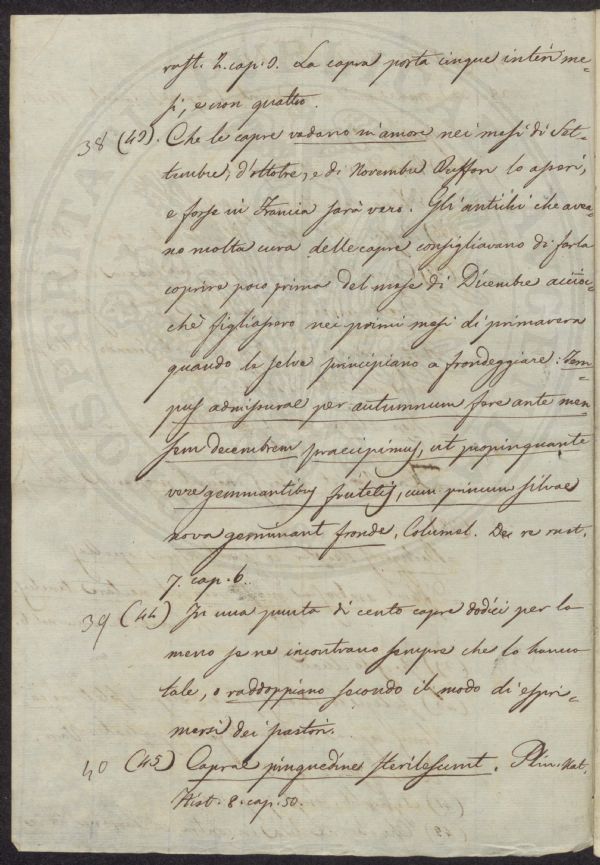 rust. 2. cap. 8. La capra porta cinque interi me-
si, e non quattro.
38 (43). Che le capre vadano in amore nei mesi di Set-
tembre, d'ottobre, e di Novembre Buffon lo asserì,
e forse in Francia sarà vero. Gli antichi che avea-
no molta cura delle capre consigliavano di farla
coprire poco prima del mese di Dicembre accioc-
chè figliassero nei primi mesi di primavera
quando le selve principiano a frondeggiare: Tem-
pus admissurae per autumnum fere ante men-
sem decembrem praecipimus, ut propinquante
vere gemmantibus frutetis, cum primum silvae
nova geminant fronde. Columel. De re rust.
7. cap. 6.
39 (44) In una punta di cento capre dodici per lo
meno se ne incontrano sempre che lo hanno
tale, o raddoppiano secondo il modo di espri-
mersi dei pastori.
40 (45) Caprae pinguedine sterilescunt. Plin. Nat.
Hist. 8. cap. 50.